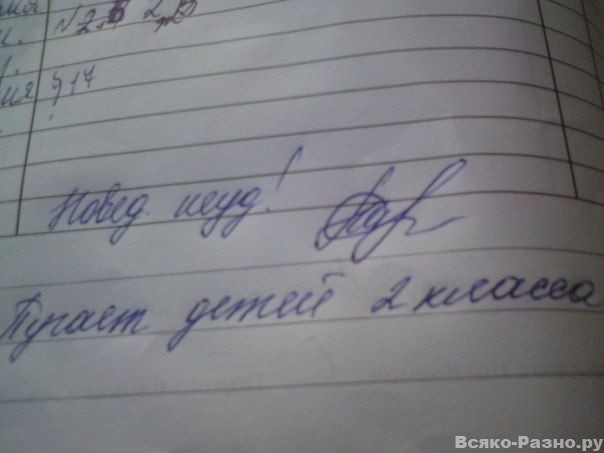 №2,
§17
Повед. неуд!
Пугает детей 2 класса
Всяко-Разно.ру